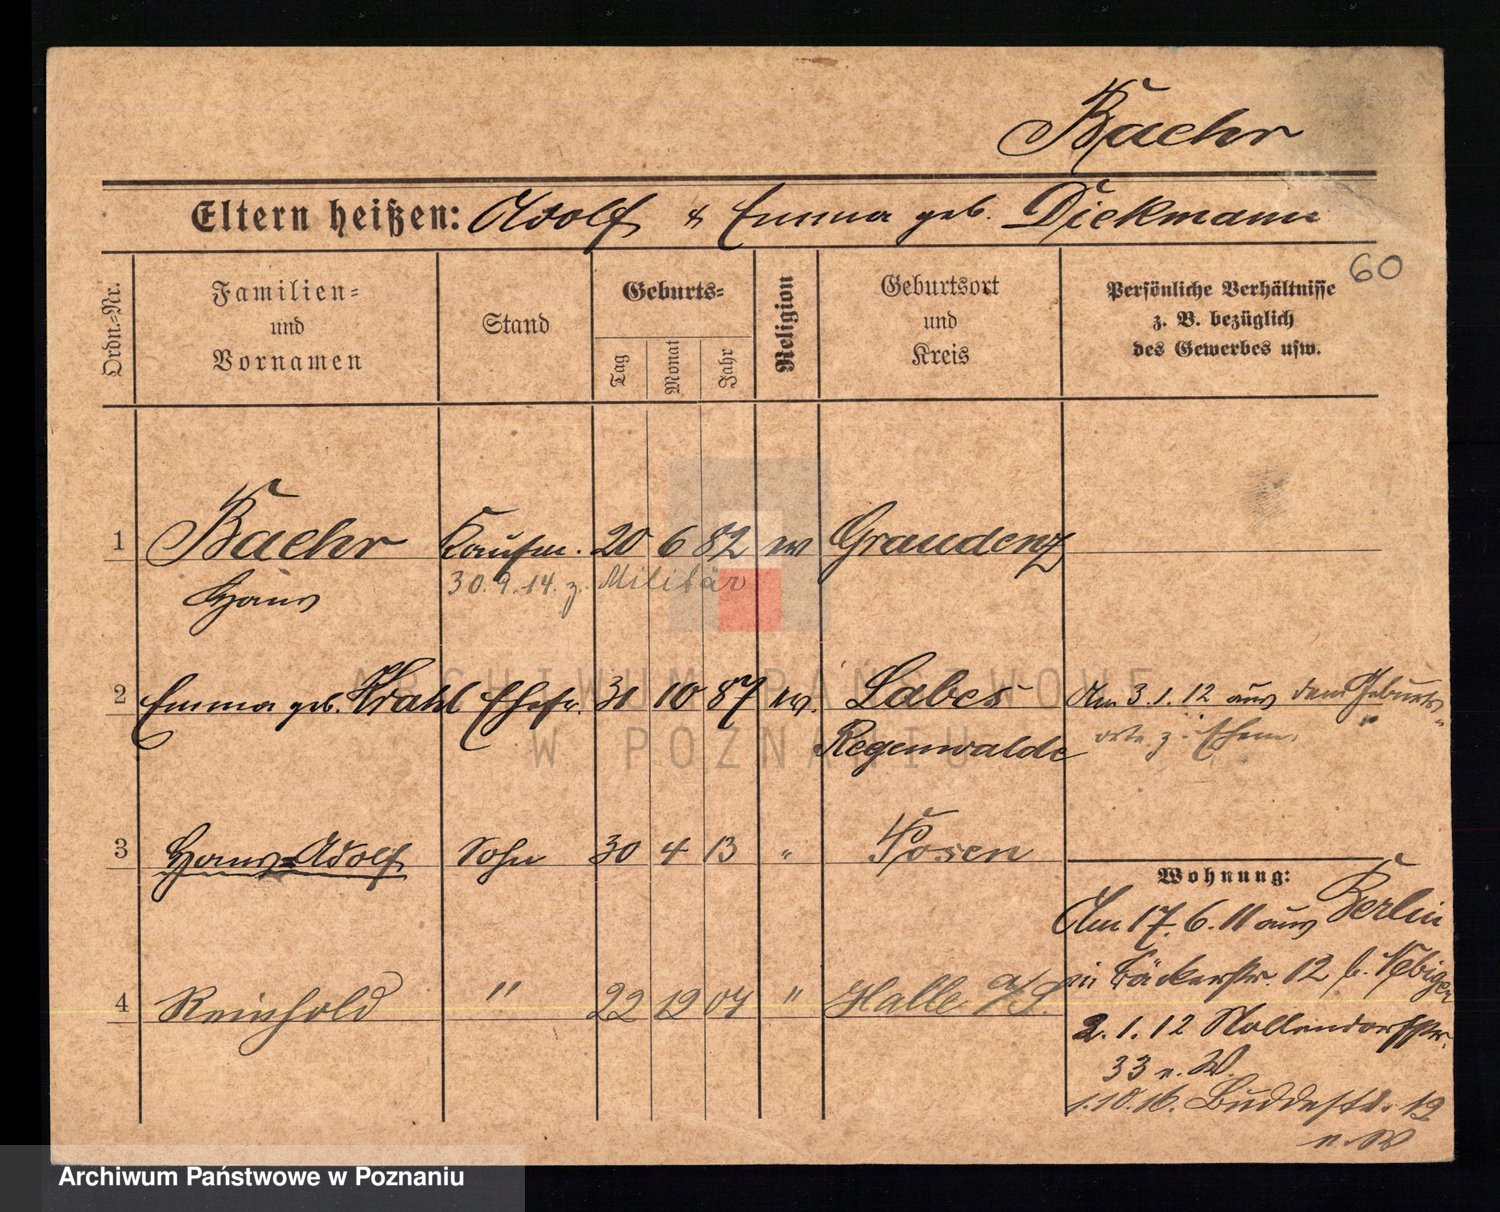 Baehr
Eltern heißen: Adolf & Emma geb. Diekmann
60
Ordn.-Nr.
Familien-
und
Vornamen
Stand
Geburts-
Tag
Monat
Jahr
Religion
Geburtsort
und
Kreis
Persönliche Verhältnisse
z. B. bezüglich
des Gewerbes usw.
1 Baehr Kaufm. 20 6 82 ev Graudenz
Hans 30.9.14. z. Militär
2 Emma geb. Krahl Ehefr. 31 10 87 ev. Labes Am 3.1.12 aus dem Geburts-
Regenwalde orte z. Ehem.
3 Hans-Adolf Sohn 30 4 13 " Posen
Wohnung:
Am 17.6.11 aus Berlin
in Bäckerstr. 12 b.
4 Reinhold " 22 12 07 " Halle a/S.
2.1.12 Nollendorfstr.
33 e. W.
1.10.16. Buddestr. 12
e. W
ARCHIWUM PAŃSTWOWE
W POZNANIU
Archiwum Państwowe w Poznaniu